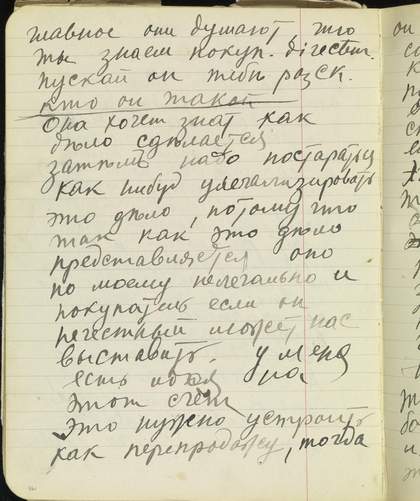 главное они думают, что
ты знаем покуп. direct.
пускай он тебѣ разск.
кто он такой
Она хочет знат как
дѣло сдѣлается
затѣмъ надо постараться
как нибуд улегализировать
это дѣло, потому что
так как это дѣло
представляется оно
по моему нелегально и
покупатель если он
нечестный может нас
выставить. у меня
есть идея на
этот счет
это нужно устроить
как перепродажу, тогда